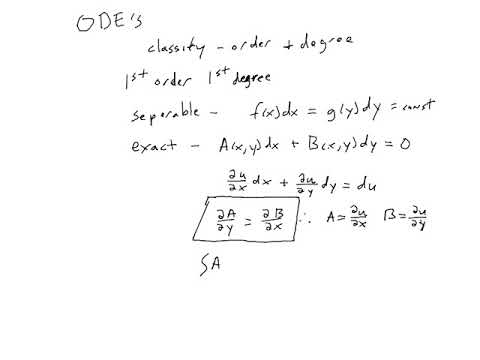 ODE's
classify - order + degree
1st order 1st degree
separable - f(x)dx = g(y)dy = const
exact - A(x,y)dx + B(x,y)dy = 0
∂u/∂x dx + ∂u/∂y dy = du
∂A/∂y = ∂B/∂x ∴ A = ∂u/∂x B = ∂u/∂y
∫A